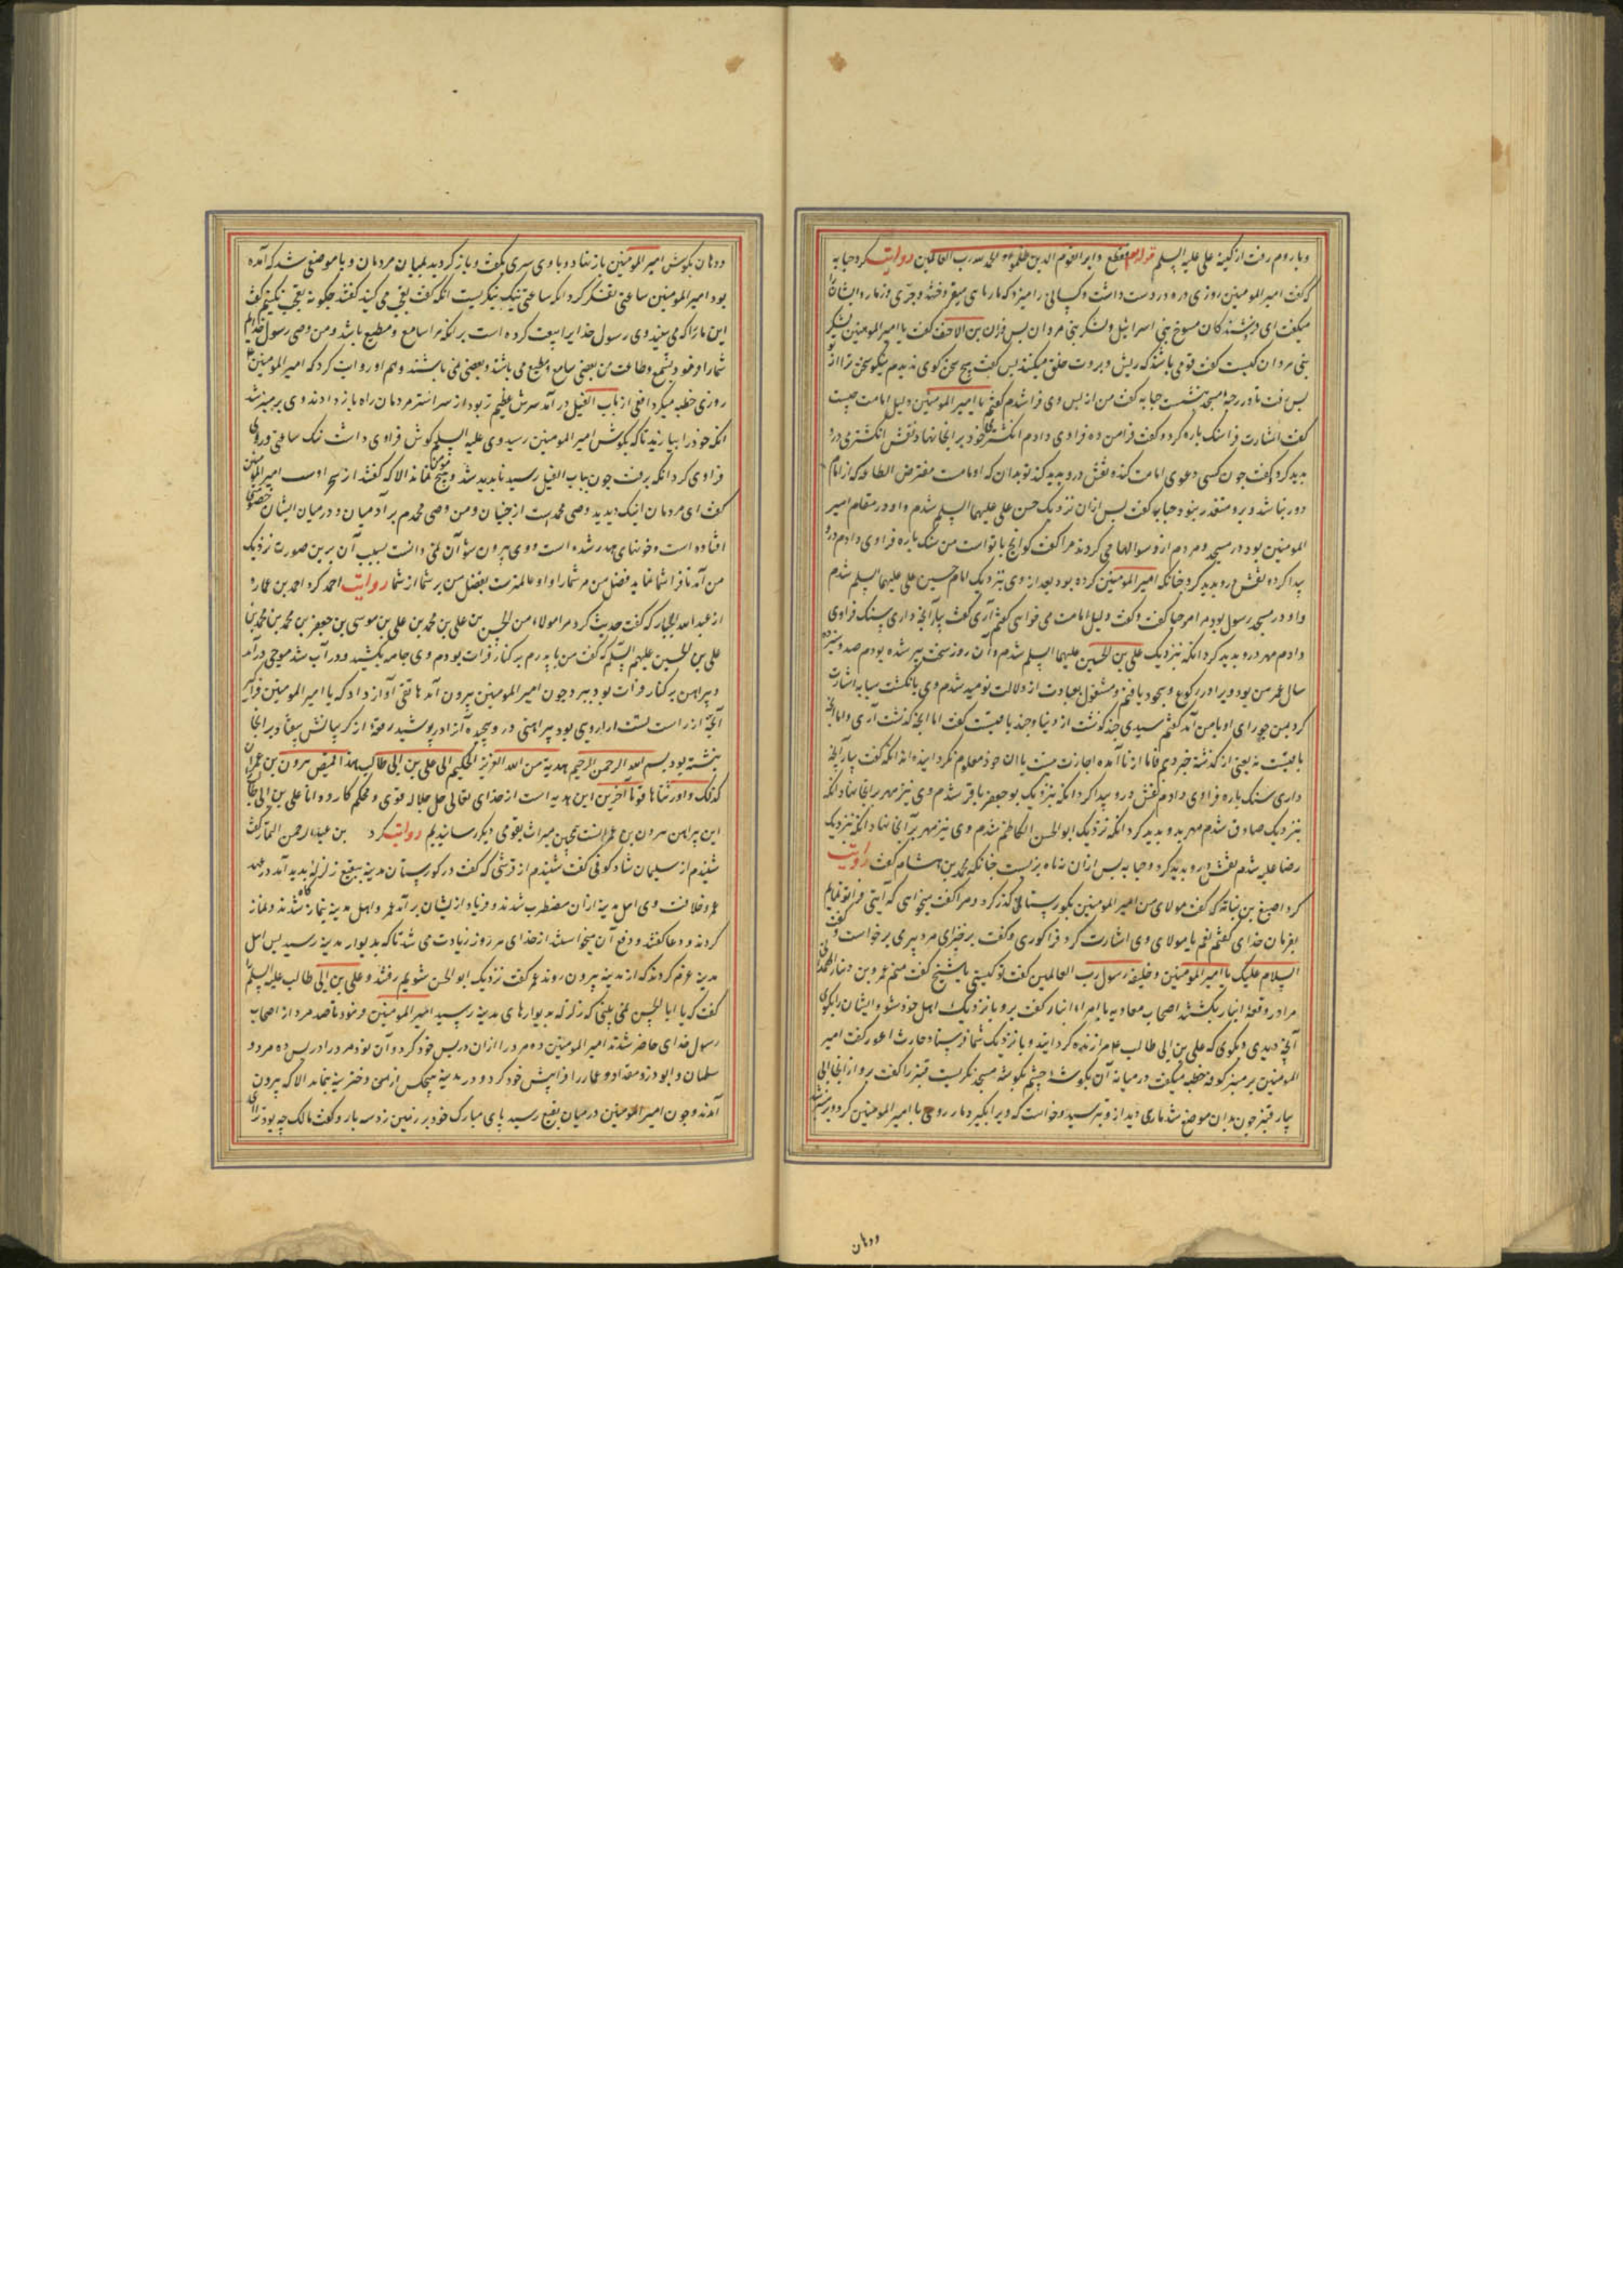 وبا روم رفت از کینه علی علیه السلم قوله تع فقطع دابر القوم الذین ظلموا والحمد لله رب العالمین روایت کرد حبابه
که گفت امیر المومنین روزی دره در دست داشت و کسانی را میزد که مار ماهی میفروختند و جری و زمار و ایشانرا
میگفت ای فروشندکان مسوخ بنی اسرائیل ولشکر بنی مروان بس فرات بن الاحنف گفت یا امیر المومنین لشکر
بنی مروان کیست گفت قومی باشند که ریش و بروت حلق میکنند بس گفت هیچ سخن کوی ندیدم نیکو سخن تر از او
بس رفت تا در رحبه مسجد بنشست حبابه گفت من از بس وی فرا شدم گفتم یا امیر المومنین دلیل امامت چیست
گفت اشارت فرا سنک باره کرد و گفت فرا من ده فرا وی دادم انکشتری خود بر انجا نهاد نقش انکشتری در و
بدید کرد و گفت جون کسی دعوی امامت کند و نقش درو بدید کند تو بدان که او امامت مفترض الطاعه که از امام
دور نباشد و برو متعذر نبود حبابه گفت بس ازان نزدیک حسن علی علیهما السلم شدم و او در مقام امیر
المومنین بود در مسجد و مردم از و سوالها می کردند مرا گفت کو انچ با تو است من سنک باره فرا وی دادم در و
بیدا کرد و نقش درو بدید کرد جنانکه امیر المومنین کرده بود بعد از وی بنزدیک امام حسین علی علیهما السلم شدم
و او در مسجد رسول بود مرا مرحبا گفت و گفت دلیل امامت می خواهی گفتم آری گفت بیار آنچ داری سنک فرا وی
دادم مهر درو بدید کرد انکه بنزدیک علی بن الحسین علیهما السلم شدم و آن روز سخت پیر شده بودم صد و سیزده
سال عمر من بود ویرا در رکوع و سجود یافتم و مشغول بعبادت از دلالت نومید شدم وی بانکشت سبابه اشارت
کرد بمن جوانی با من آمد گفتم سیدی جند گذشت از دنیا و جند باقیست گفت اما انچ گذشت آری و اما انچ
باقیست نه یعنی از گذشته خبر دهیم
داری سنک باره فرا وی دادم نقش درو بیدا کرد انکه بنزدیک بو جعفر باقر شدم وی نیز مهر بر انجا نهاد انکه
بنزدیک صادق شدم مهر بدو بدید کرد انکه نزدیک ابو الحسن الکاظم شدم وی نیز مهر بر انجا نهاد انکه نزدیک
رضا علیه شدم نقش درو بدید کرد و حبابه بس ازان نه ماه بزیست جنانکه محمد بن هشام گفت روایت
کرد اصبغ بن نباته که گفت مولای من امیر المومنین بکورستانی گذر کرد و مرا گفت میخواهی که آیتی فرا تو نمایم
بفرمان خدای گفتم نعم یا مولای وی اشارت کرد فرا کوری و گفت برخیز ای مرد پیر می برخواست و گفت
السلام علیک یا امیر المومنین و خلیفه رسول رب العالمین گفت تو کیستی یا شیخ گفت منم عمرو بن دینار الهمدانی
مرا در وقعه انبار بکشتند اصحاب معاویه با امراء انبار گفت برو با نزدیک اهل خود شو و ایشانرا بکوی
آنچ دیدی و بکوی که علی بن ابی طالب مرا زنده کردانید و با نزدیک شما فرستاد حارث اعور گفت امیر
المومنین بر منبر کوفه خطبه میگفت در میانه آن بکوشه چشم بکوشه مسجد نکریست قنبر را گفت برو از انجا انچ
بیار قنبر جون بدان موضع شد ماری دید ازو بترسید و خواست که ویرا بگیرد مار روی با امیر المومنین کرد و بر منبر شد
ودهان
ودهان بکوش امیر المومنین باز نهاد و با وی سری بگفت و باز گردید بمیان مردمان و با موضعی شد که آمده
بود امیر المومنین ساعتی تفکر کرد انکه ساعتی نیک بنکریست انکه گفت تعجب می کنید گفتند جکونه تعجب نکنیم گفت
این مار را که می بینید وی رسول خدایرا بیعت کرده است بر انکه مرا سامع و مطیع باشد و من وصی رسول خدایم
شما را و بعضی سامع و مطیع می باشند و بعضی نمی باشند و هم او روایت کرد که امیر المومنین
روزی خطبه میکرد افعی از باب الفیل در آمد سرش عظیم تر بود از سر اشتر مردمان راه باز دادند وی بر منبر شد
انکه خود را بیازید تا که بکوش امیر المومنین رسید وی علیه السلم کوش فرا وی داشت نیک ساعتی و روی
فرا وی کرد انکه برفت جون بباب الفیل رسید نابدید شد و هیچ مومن نماند الا که گفتند از سحر اوست امیر المومنین
گفت ای مردمان اینک دیدید وصی محمد است از جنیان و من وصی محمدم بر آدمیان و در میان ایشان خصومتی
افتاده است و خونهای هدر شده است و وی بیرون شو آن نمی دانست بسبب آن برین صورت نزدیک
من آمد تا فرا شما نماید فضل من بر شما را و او عالمترست بفضل من بر شما از شما روایت احمد کرد احمد بن عماره
از عبد الله الجبار که گفت حدیث کرد مرا مولاء من الحسن بن علی بن محمد بن علی بن موسی بن جعفر بن محمد بن
علی بن الحسین علیهم السلم که گفت من با پدرم بر کنار فرات بودم وی جامه بکشید و در آب شد موجی در آمد
و پیراهن بر کنار فرات بود ببرد جون امیر المومنین بیرون آمد هاتفی آواز داد که یا امیر المومنین فراگیر
آنچ از راست تست ازاری دید بود پیراهنی در و پیچیده آنرا در پوشید رقعه از گریبانش بیفتاد بر انجا
نبشته بود بسم الله الرحمن الرحیم هدیه من الله العزیز الحکیم الی علی بن ابی طالب هذا قمیص هرون بن عمران
کذلک واورثناها قوما آخرین این هدیه است از خدای تعالی جل جلاله قوی و محکم کار
این پیراهن هرون بن عمران است همچنین میراث بقومی دیکر رسانیدیم روایت کرد بن عبد الرحمن
شنیدم از سلیمان شاذکونی گفت شنیدم از قرشی که گفت در کورستان مدینه ببقیع زلزله بدید آمد در عهد
عمر و خلافت وی اهل مدینه ازان مضطرب شدند و فریاد از ایشان بر آمد عمر و اهل مدینه بنماز گاه شدند و نماز
کردند و دعا گفتند و دفع آن میخواستند از خدای هر روز زیادت می شد تا که بدیوار مدینه رسید بس اهل
مدینه عزم کردند که از مدینه بیرون روند عمر گفت نزدیک ابو الحسن شویم رفتند و علی بن ابی طالب علیه السلم را
گفت که یا ابا الحسن نمی بینی که زلزله بدیوارهای مدینه رسید امیر المومنین فرمود تا صد مرد از اصحاب
رسول خدای حاضر شدند امیر المومنین ده مرد را ازان در پس خود کرد و آن نود مرد را در پس ده مرد و
سلمان و ابوذر و مقداد و عمار را فرا پیش خود کرد و در مدینه هیچکس از مسن و دختر نماند الا که بیرون
آمدند و جون امیر المومنین در میان بقیع رسید پای مبارک خود بر زمین زد سه بار و گفت مالک چه بود ترا ای